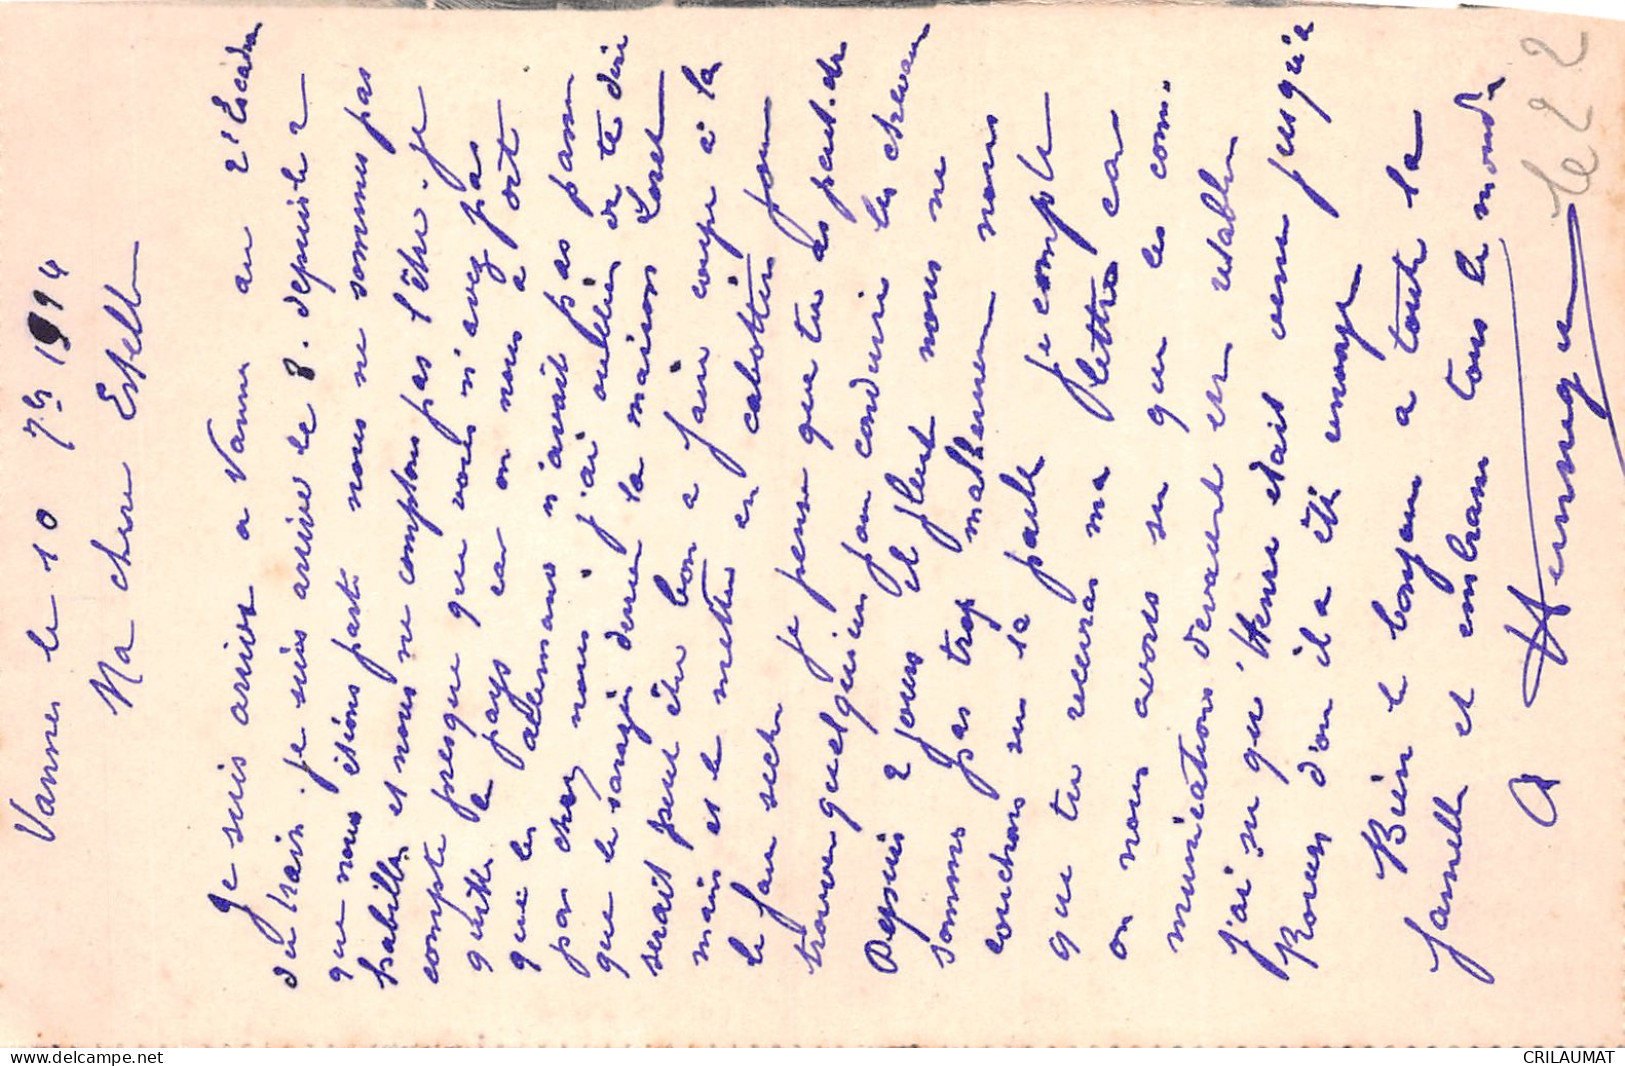 Vannes le 10 7bre 1914
Ma chere Estelle
Je suis arrivé a Vanne au 2e Escadron
du train. je suis arrivé le 8. depuis le 2
que nous étions parti nous ne sommes pas
habillés et nous ne comptons pas l'être. Je
compte presque que vous n'avez pas
quitté le pays car on nous a dit
que les allemans n'avait pas passer
par chez nous. j'ai oublié de te dire
que le sarrazin derrier la maison Loret
serait peut être bon a faire coupé à la
main et le mettre en cabottin pour
le faire secher je pense que tu as peut-etre
trouver quelqu'un pour conduire les chevaux
Depuis 2 jours il pleut nous ne
sommes pas trop malheureux nous
couchons sur la paille je compte
que tu recevras ma lettre car
on nous avons su que les com-
munications devaient etre rétablies
j'ai su qu'Henri était venu jusqu'a
Rouen d'ou il a été envoyé
Bien le bonjour a toute la
famille et embrasse tous le monde
A Hennequin
le 22
CRILAUMAT